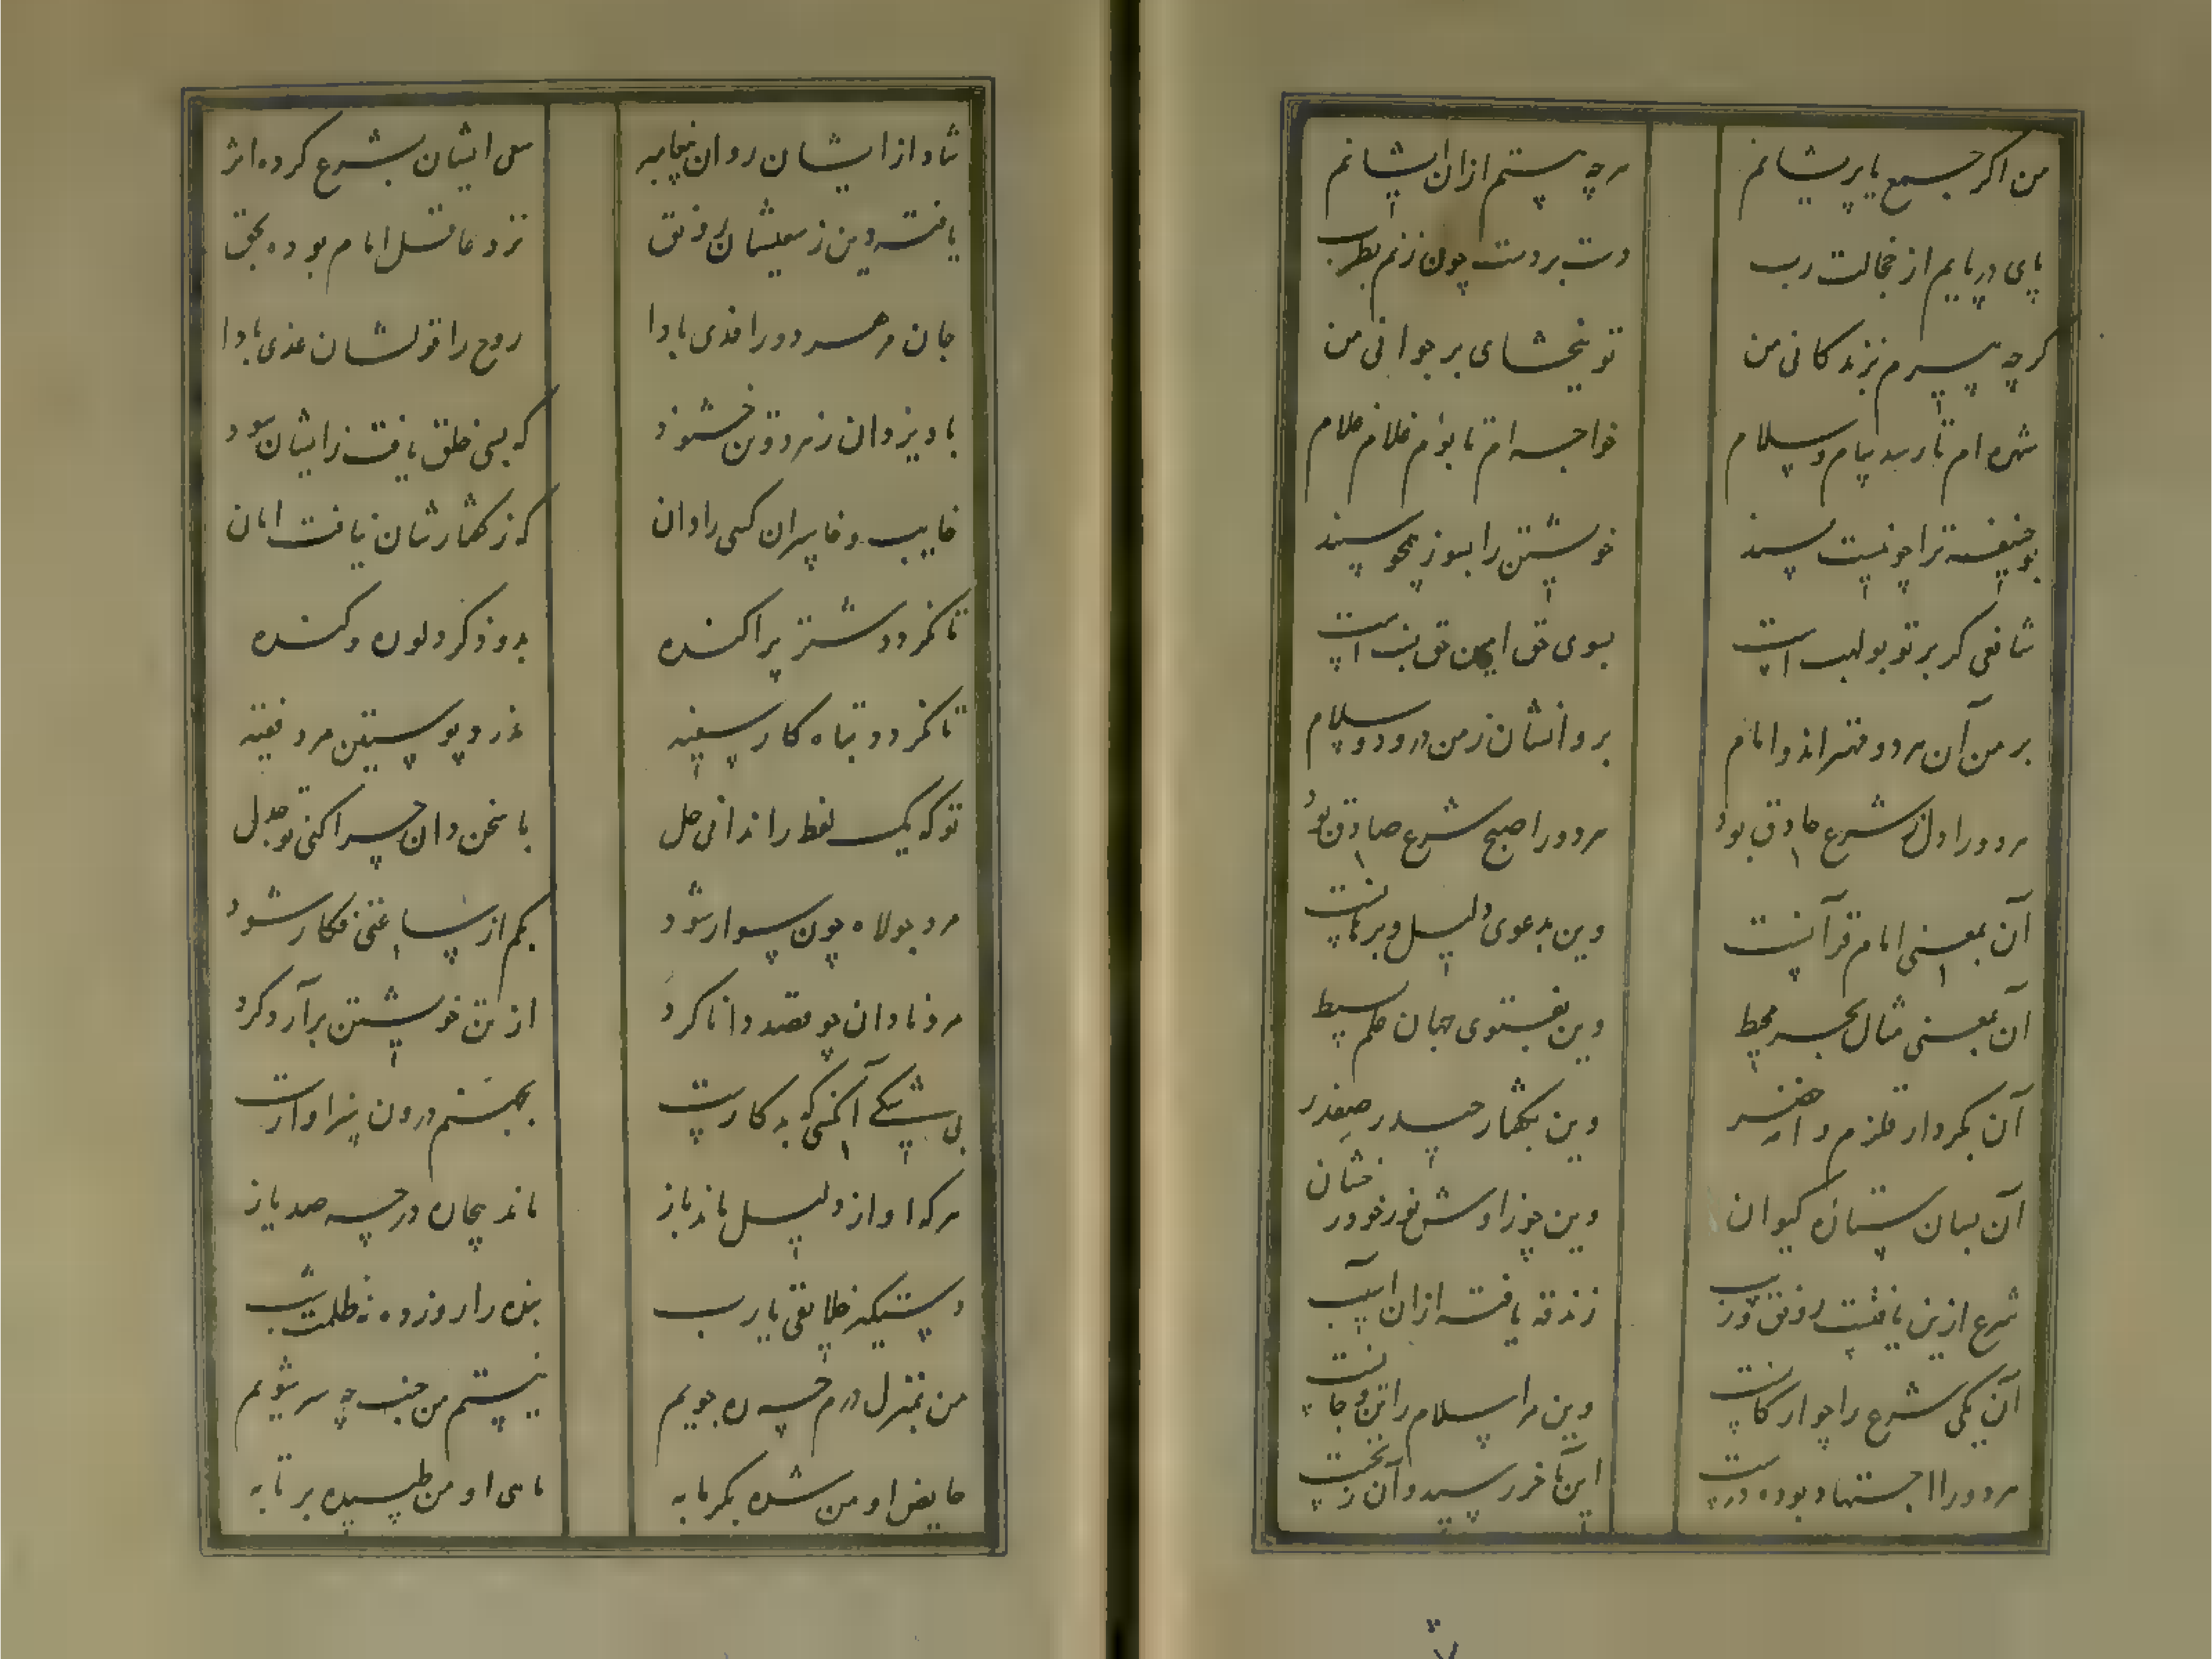 من اکر جمع یا پریشانم هرچه هستم ازان ایشانم
پای در پایم از خجالت رب دست بر دست چون زنم بطرب
کرچه پیرم بزندکانی من تو ببخشای بر جوانی من
شهره ام تا رسد پیام و سلام خواجه ام تا بوم غلام غلام
بوحنیفه ترا چو نیست پسند خویشتن را بسوز همچو سپند
شافعی کر بر تو بولهب است سوی حق این حق نسب است
بر من آن هر دو مهتراند و امام بر وانشان ز من درود و سلام
هر دو را دل ز شرع حاذق بود هر دو را صبح شرع صادق بود
آن بمعنی امام قرآنست وین بدعوی دلیل و برهانست
آن بمعنی مثال بحر محیط وین بفتوی جهان علم بسیط
آن بکردار قلزم و اخضر وین بکفتار حیدر صفدر
آن بسان ستاره کیوان وین چو زاوش نور خود رخشان
شرع ازین یافتست رونق و زیب زندقه یافته ازان آسیب
آن یکی شرع را چو ارکانست وین مر اسلام را تن و جانست
هر دو را اجتهاد بوده درست این بآخر رسید و آن ز نخست
شاد از ایشان روان پیغامبر سعی ایشان بشرع کرده اثر
یافته دین ز سعیشان رونق نزد عاقل امام بوده بحق
جان هر دو را فدی بادا روح را قولشان غذی بادا
باد یزدان ز هر دو تن خشنود که بسی خلق یافت زایشان سود
خایب و خاسر آن کسی را دان که ز کفتارشان نیافت امان
تا نکردد شتر پراکنده بدود کرد لوره و کنده
تا نکردد تباه کار سفیه ندرد پوستین مرد فقیه
تو که یک لفظ را ندانی حل با سخن دان چرا کنی تو جدل
مرد جولاه چون سوار شود بکم از ساعتی فکار شود
مرد نادان چو قصد دانا کرد از تن خویشتن برآرد کرد
بی شکی آنکسی که بدکارست بجهنم درون سزاوارست
هر که او از دلیل ماند باز ماند بیچاره در چه صد یاز
دستکیر خلایقی یارب بنده را روز ده نه ظلمت شب
من بمنزل درم چه ره جویم نیستم من جنب چه سر شویم
حایض او من شده بکرمابه ماهی او من طپیده بر تابه